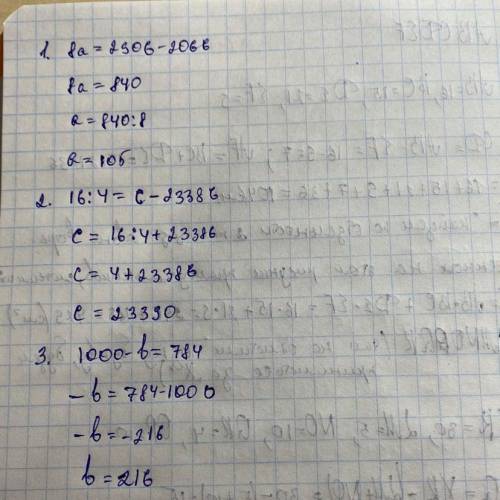 1. 8a = 2906-2066
8a = 840
a = 840:8
a = 105
2. 16:4 = c - 23386
c = 16:4+23386
c = 4+23386
c = 23390
3. 1000-b = 784
-b = 784-1000
-b = -216
b = 216